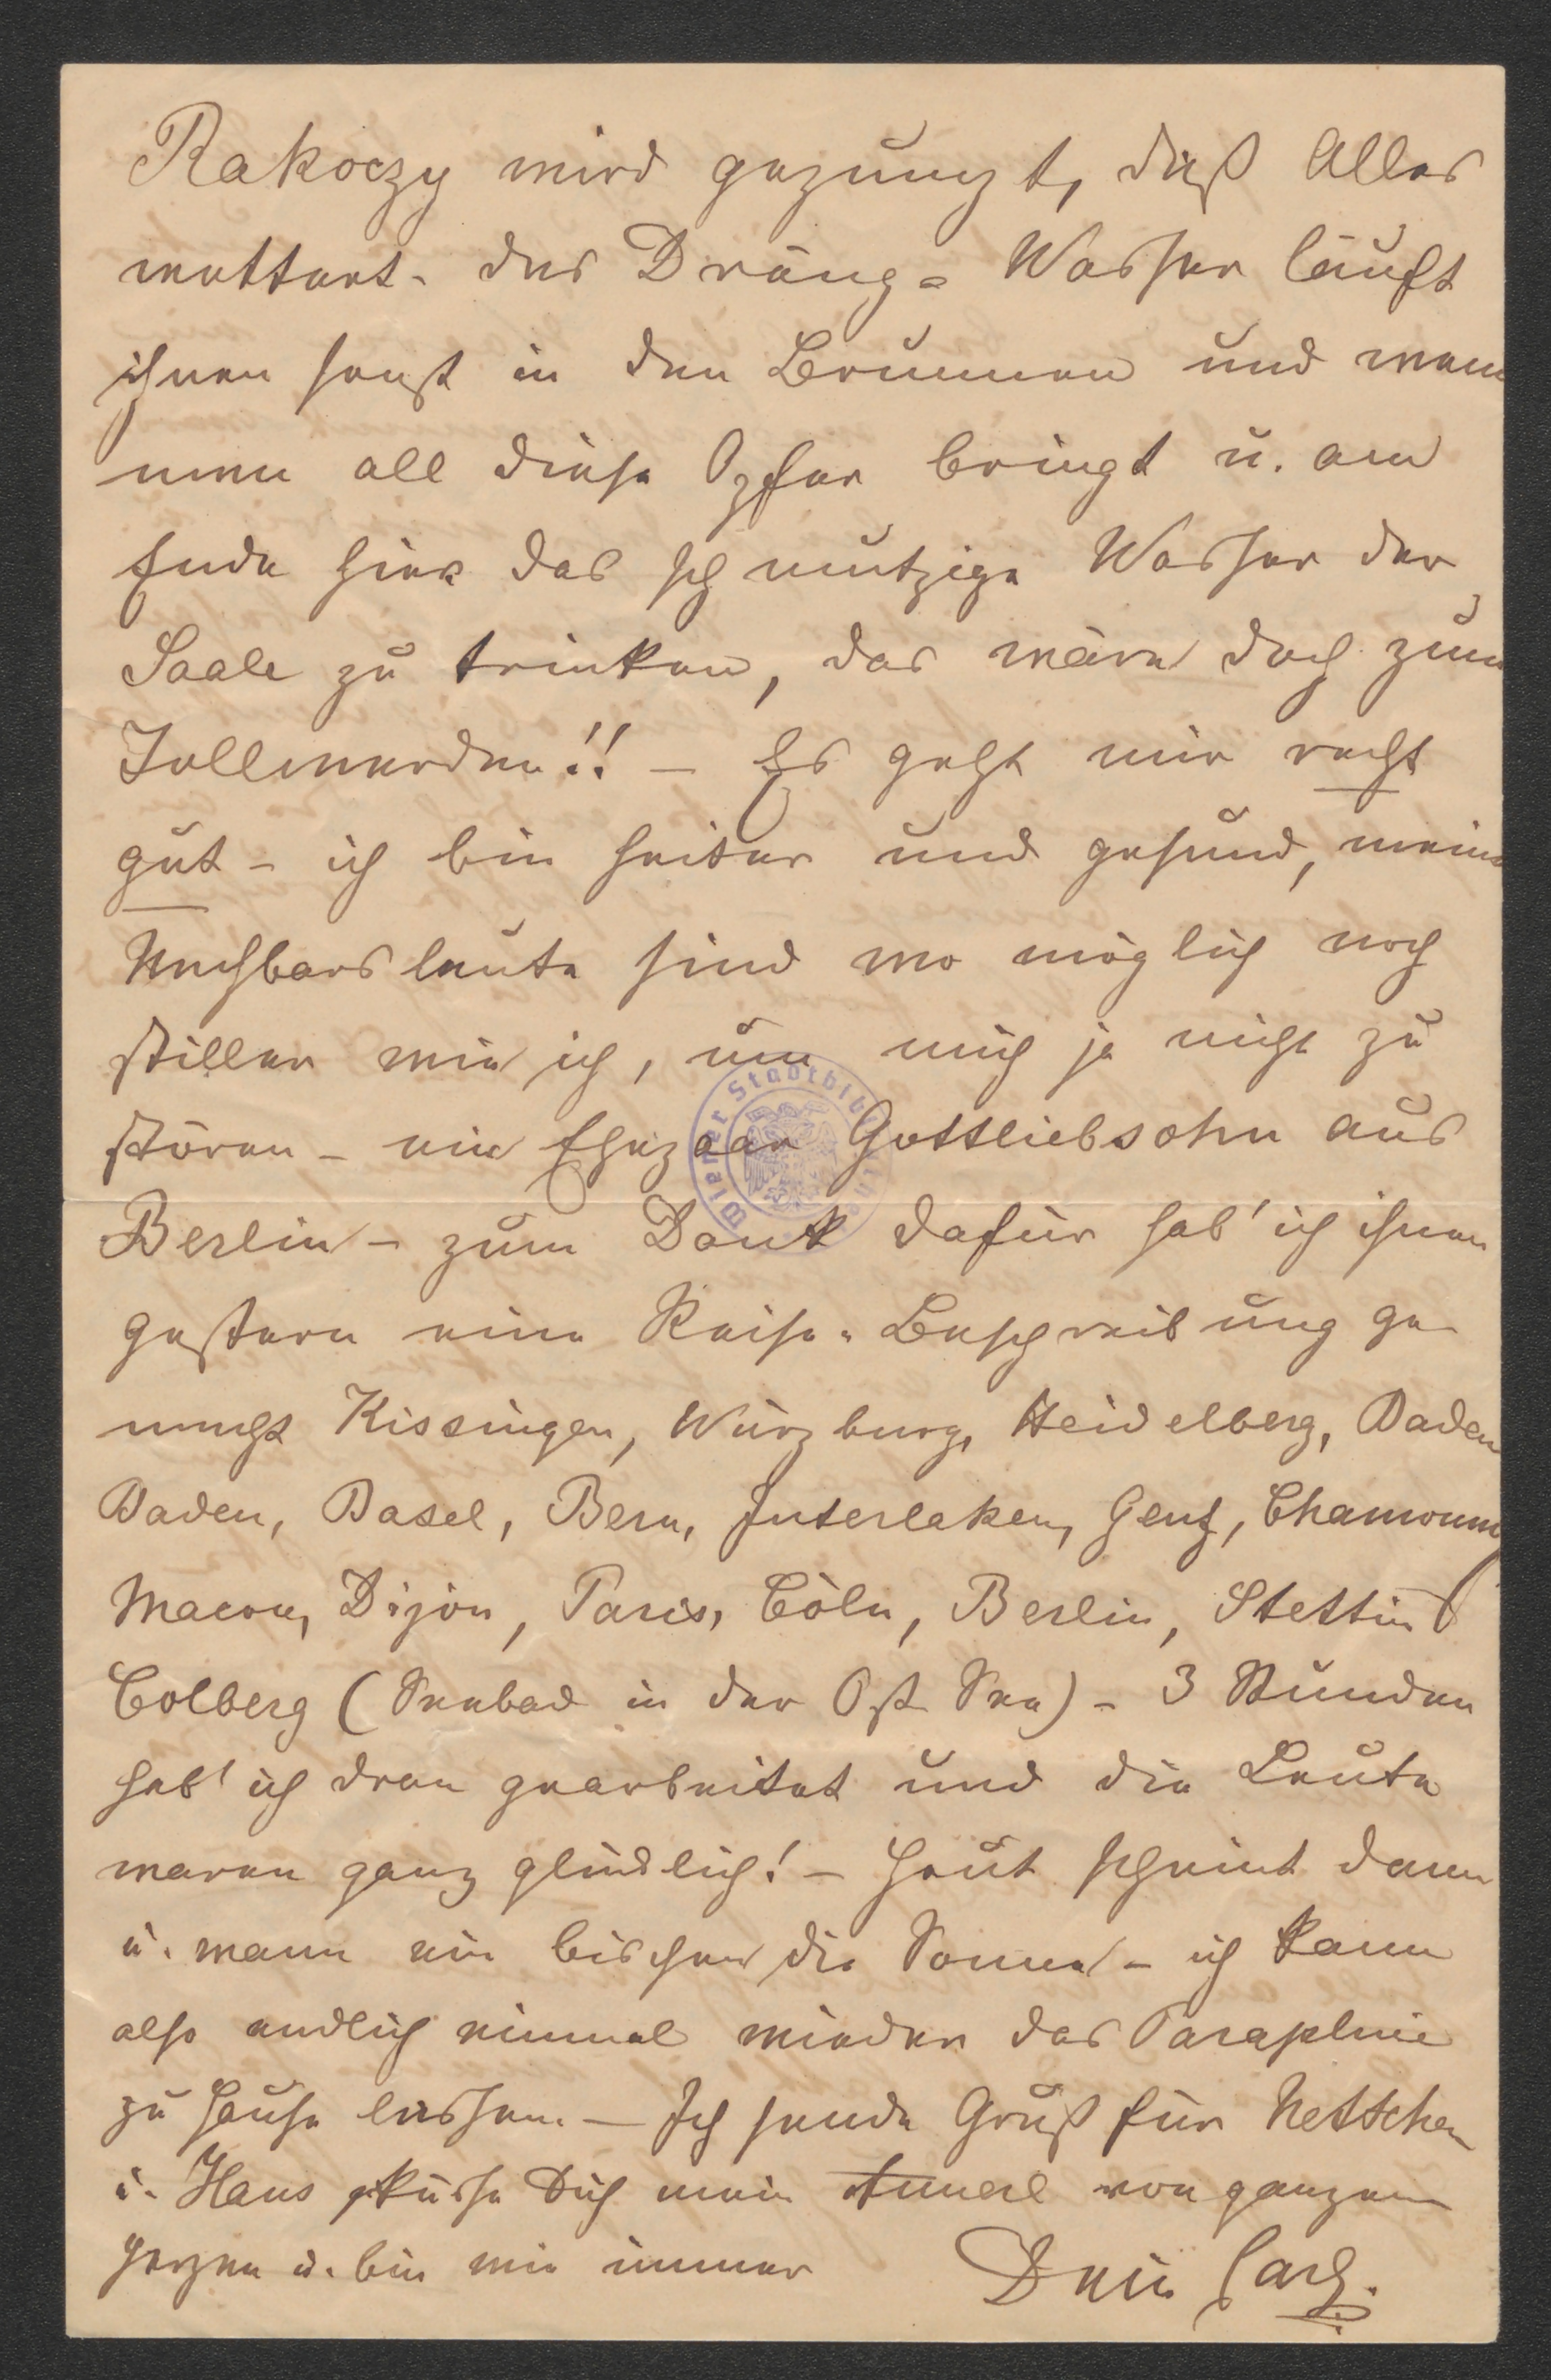 Rakoczy wird gepumpt, daß Alles
wettert. das Dräng-Wasser läuft
ihnen sonst in den Brunnen und wenn
man all diese Opfer bringt u. am
Ende hier das schmutzige Wasser der
Saale zu trinken, das wäre doch zum
Tollwerden!! – Es geht mir recht
gut – ich bin heiter und gesund, meine
Nachbarsleute sind wo möglich noch
stiller wie ich, um mich ja nicht zu
stören – ein Ehepaar Gottliebsohn aus
Berlin – zum Dank dafür hab' ich ihnen
gestern eine Reise-Beschreibung ge
macht Kissingen, Würzburg, Heidelberg, Baden
Baden, Basel, Bern, Interlaken, Genf, Chamouny
Macon, Dijon, Paris, Cöln, Berlin, Stettin
Colberg (Seebad in der Ost See) – 3 Stunden
hab' ich dran gearbeitet und die Leute
waren ganz glücklich! – Heut scheint dann
u. wann ein bischen die Sonne – ich kann
also endlich einmal wieder das Parapluie
zu Hause lassen. – Ich sende Gruß für Nettchen
u. Hans küsse Dich mein Annerl von ganzem
Herzen u. bin wie immer Dein Carl.
Wiener Stadtbibliothek